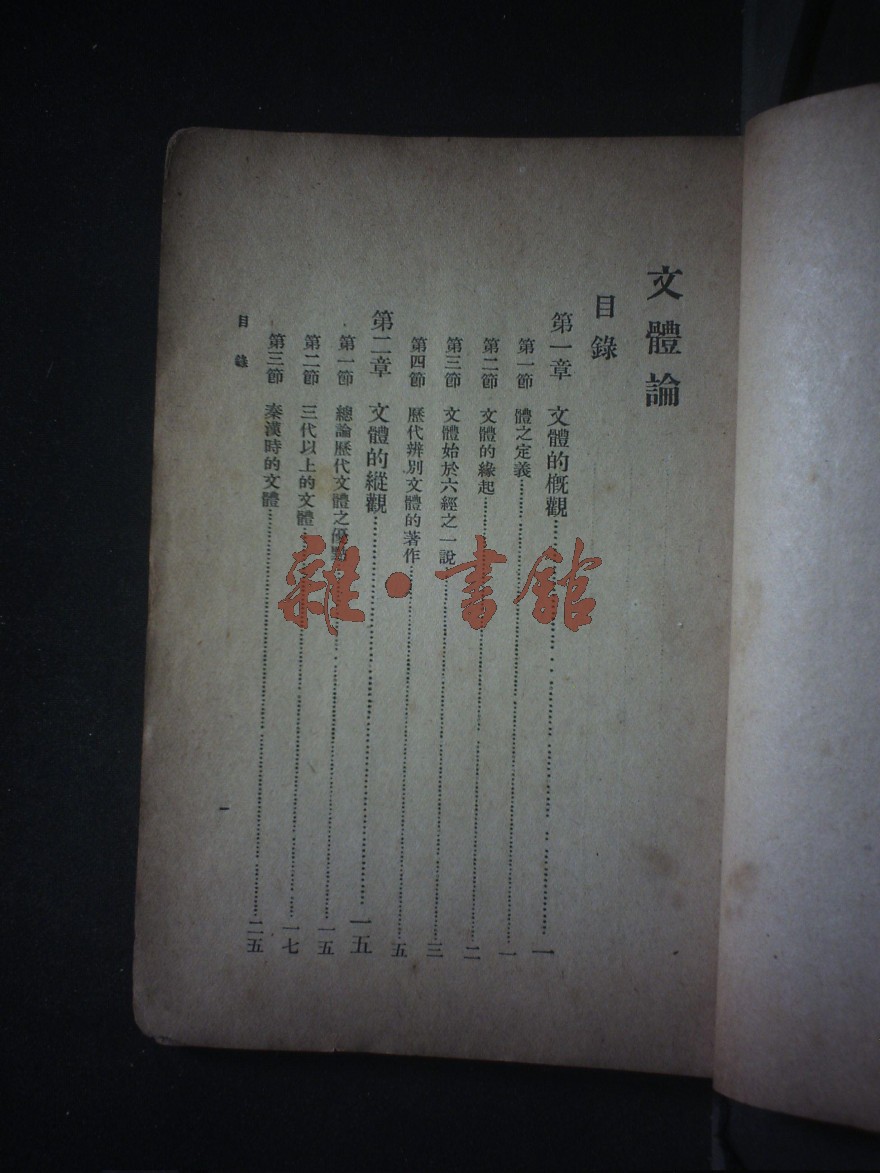 文體論
目錄
第一章　文體的概觀……一
第一節　體之定義……一
第二節　文體的緣起……二
第三節　文體始於六經之一說……三
第四節　歷代辨別文體的著作……五
第二章　文體的縱觀……一五
第一節　總論歷代文體之優點……一五
第二節　三代以上的文體……一七
第三節　秦漢時的文體……二五
目錄
一
雜·書館